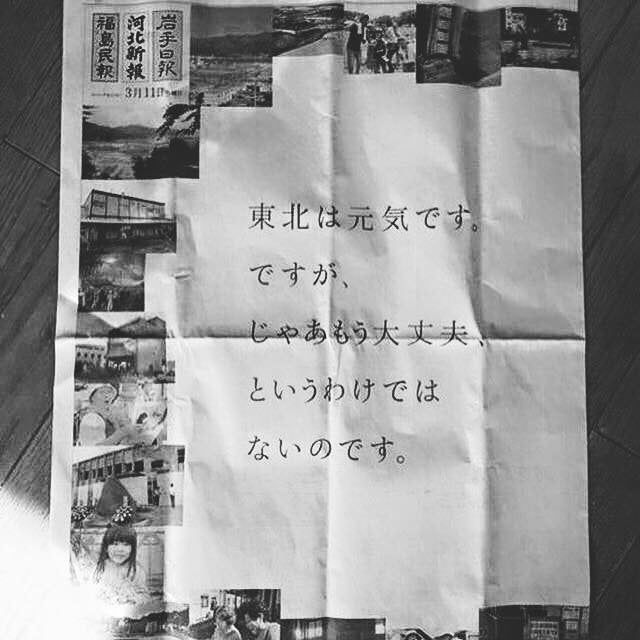 岩手日報
河北新報
福島民報
3月11日
東北は元気です。
ですが、
じゃあもう大丈夫、
というわけでは
ないのです。